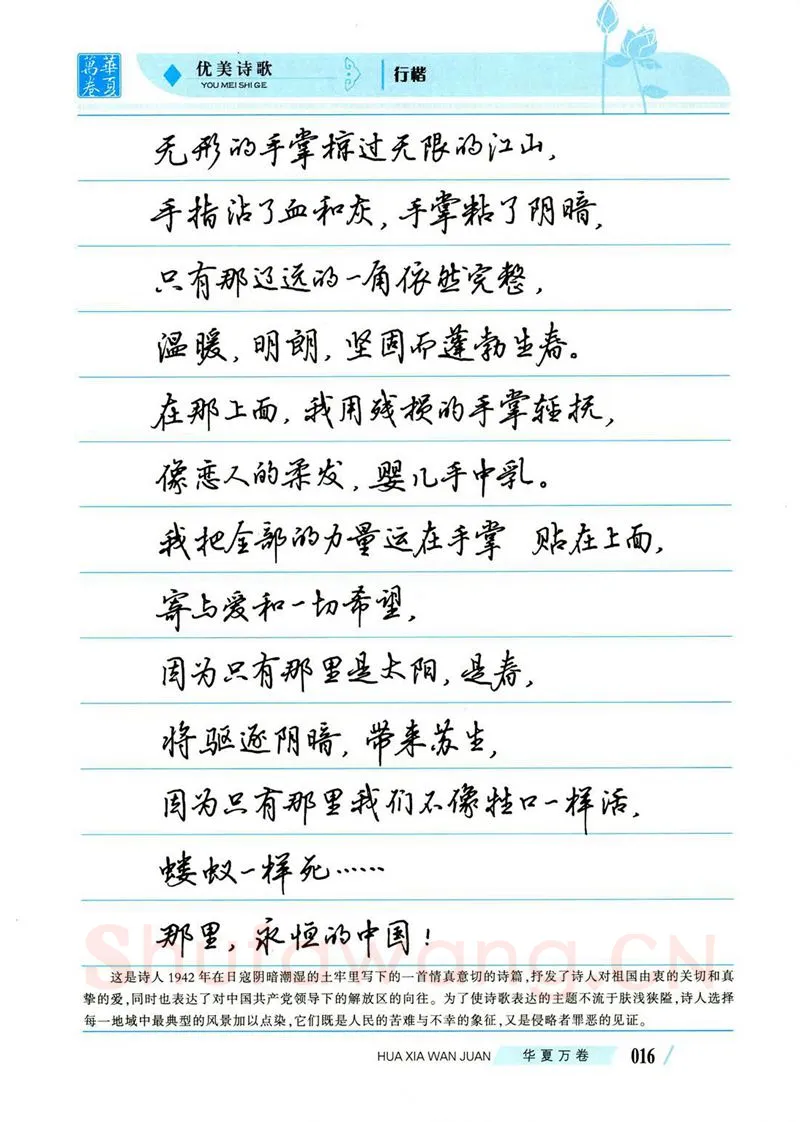 華夏
萬卷
优美诗歌
YOU MEI SHI GE
行楷
无形的手掌掠过无限的江山,
手指沾了血和灰,手掌粘了阴暗,
只有那辽远的一角依然完整,
温暖,明朗,坚固而蓬勃生春。
在那上面,我用残损的手掌轻抚,
像恋人的柔发,婴儿手中乳。
我把全部的力量运在手掌 贴在上面,
寄与爱和一切希望,
因为只有那里是太阳,是春,
将驱逐阴暗,带来苏生,
因为只有那里我们不像牲口一样活,
蝼蚁一样死……
那里,永恒的中国!
Shufawang.CN
这是诗人1942年在日寇阴暗潮湿的土牢里写下的一首情真意切的诗篇,抒发了诗人对祖国由衷的关切和真
挚的爱,同时也表达了对中国共产党领导下的解放区的向往。为了使诗歌表达的主题不流于肤浅狭隘,诗人选择
每一地域中最典型的风景加以点染,它们既是人民的苦难与不幸的象征,又是侵略者罪恶的见证。
HUA XIA WAN JUAN 华夏万卷 016